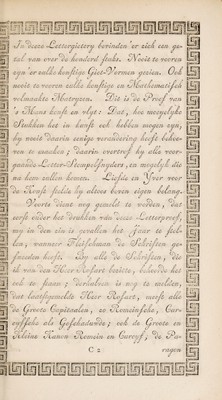 In deeze Lettergietery bevinden 'er zich een ge-
tal van over de honderd stuks. Nooit te vooren
zyn 'er zulke konstige Giet-Vormen gezien. Ook
nooit te vooren zulke konstige en Mathematisch
volmaakte Matryzen. Dit is de Proef van
's Mans konst en vlyt: Dat, hoe moeyelyke
Stukken het in konst ook hebben mogen zyn,
hy nooit daarin eenige verandering heeft behoe-
ven te maaken; daarin overtreft hy alle voor-
gaande Letter-Stempelsnyders, en mogelyk die
na hem zullen komen. Liefde en Yver voor
de Konst stelde hy altoos boven eigen belang.
Voorts dient nog gemeld te worden, dat
eerst onder het drukken van deeze Letterproef,
my in den zin is gevallen het jaar te stel-
len, wanneer Fleischman de Schriften ge-
sneeden heeft. By alle de Schriften, die
ik van den Heer Rosart bezitte, behoorde het
ook te staan; derhalven is nog te melden,
dat laatstgemelde Heer Rosart, meest alle
de Groote Capitaalen, zo Romeinsche, Cur-
cyfsche als Geschaduwde; ook de Groote en
Kleine Kanon Romein en Curcyf; de Pa-
C 2 ragon